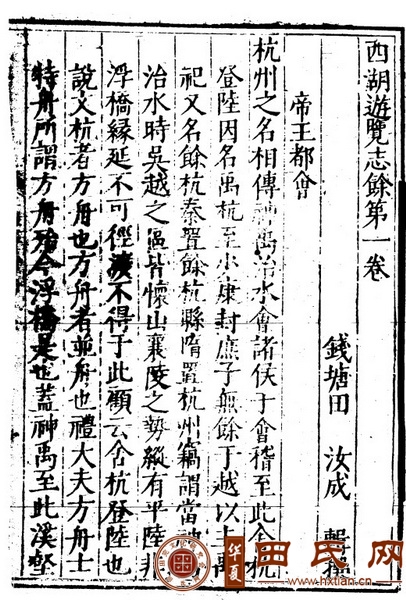 西湖遊覽志餘第一卷
錢塘田 汝成 輯
帝王都會
杭州之名相傳神禹治水會諸侯于會稽至此舍杭
登陸因名禹杭至少康封庶子無餘于越以主禹
祀又名餘杭秦置餘杭縣隋置杭州竊謂當神
治水時吳越之區皆懷山襄陵之勢縱有平陸非
浮橋緣延不可徑 不得于此顧云舍杭登陸也
說文杭者方舟也方舟者並舟也禮大夫方舟士
特舟所謂方舟殆今浮橋是也蓋神禹至此溪壑
华夏
田氏网
www.hxtian.cn